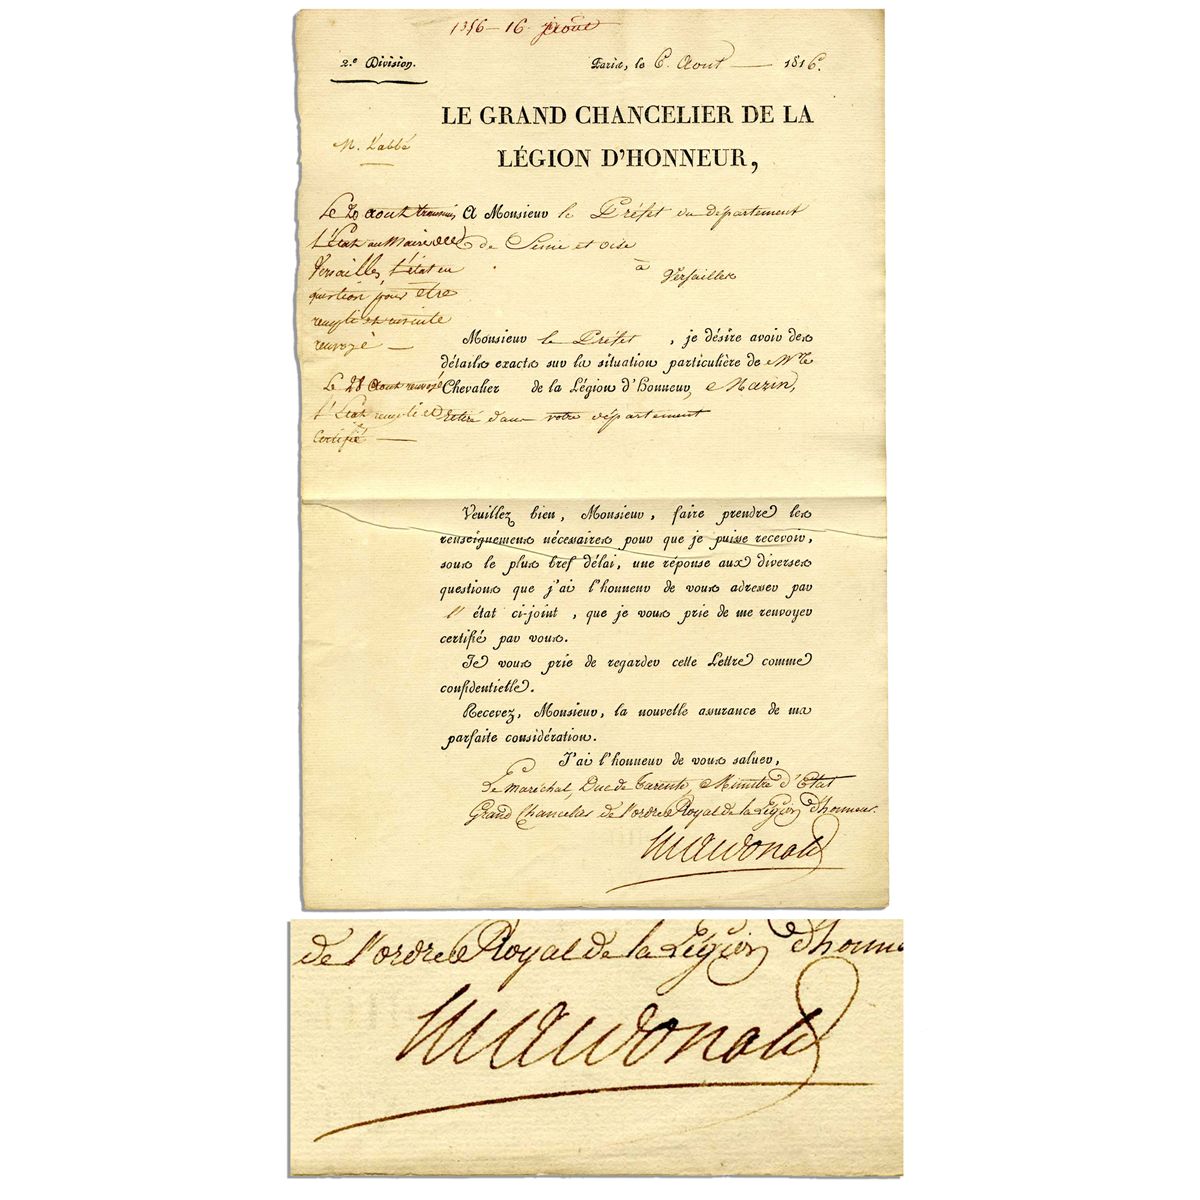 1316 - 16 Août
2.e Division.
Paris, le 6. Aout 1816.
LE GRAND CHANCELIER DE LA
LÉGION D'HONNEUR,
M. Labbé
Le 20 aout transmis
l'Etat au Maire de
Versailles, l'état en
question pour etre
rempli et ensuite
renvoyé —
Le 28 Aout renvoyé
l'Etat rempli et
Certifié —
A Monsieur le Préfet du département
de Seine et oise
à Versailles
Monsieur le Préfet, je désire avoir des
détails exacts sur la situation particulière de Mr. le
Chevalier de la Légion d'Honneur, Marin,
retiré dans votre département
Veuillez bien, Monsieur, faire prendre les
renseignemens nécessaires pour que je puisse recevoir,
sous le plus bref délai, une réponse aux diverses
questions que j'ai l'honneur de vous adresser par
l' état ci-joint, que je vous prie de me renvoyer
certifié par vous.
Je vous prie de regarder cette Lettre comme
confidentielle.
Recevez, Monsieur, la nouvelle assurance de ma
parfaite considération.
J'ai l'honneur de vous saluer,
Le Maréchal, Duc de Tarente, Ministre d'Etat
Grand Chancelier de l'ordre Royal de la Légion d'honneur.
Macdonald
de l'ordre Royal de la Légion d'honne
Macdonald